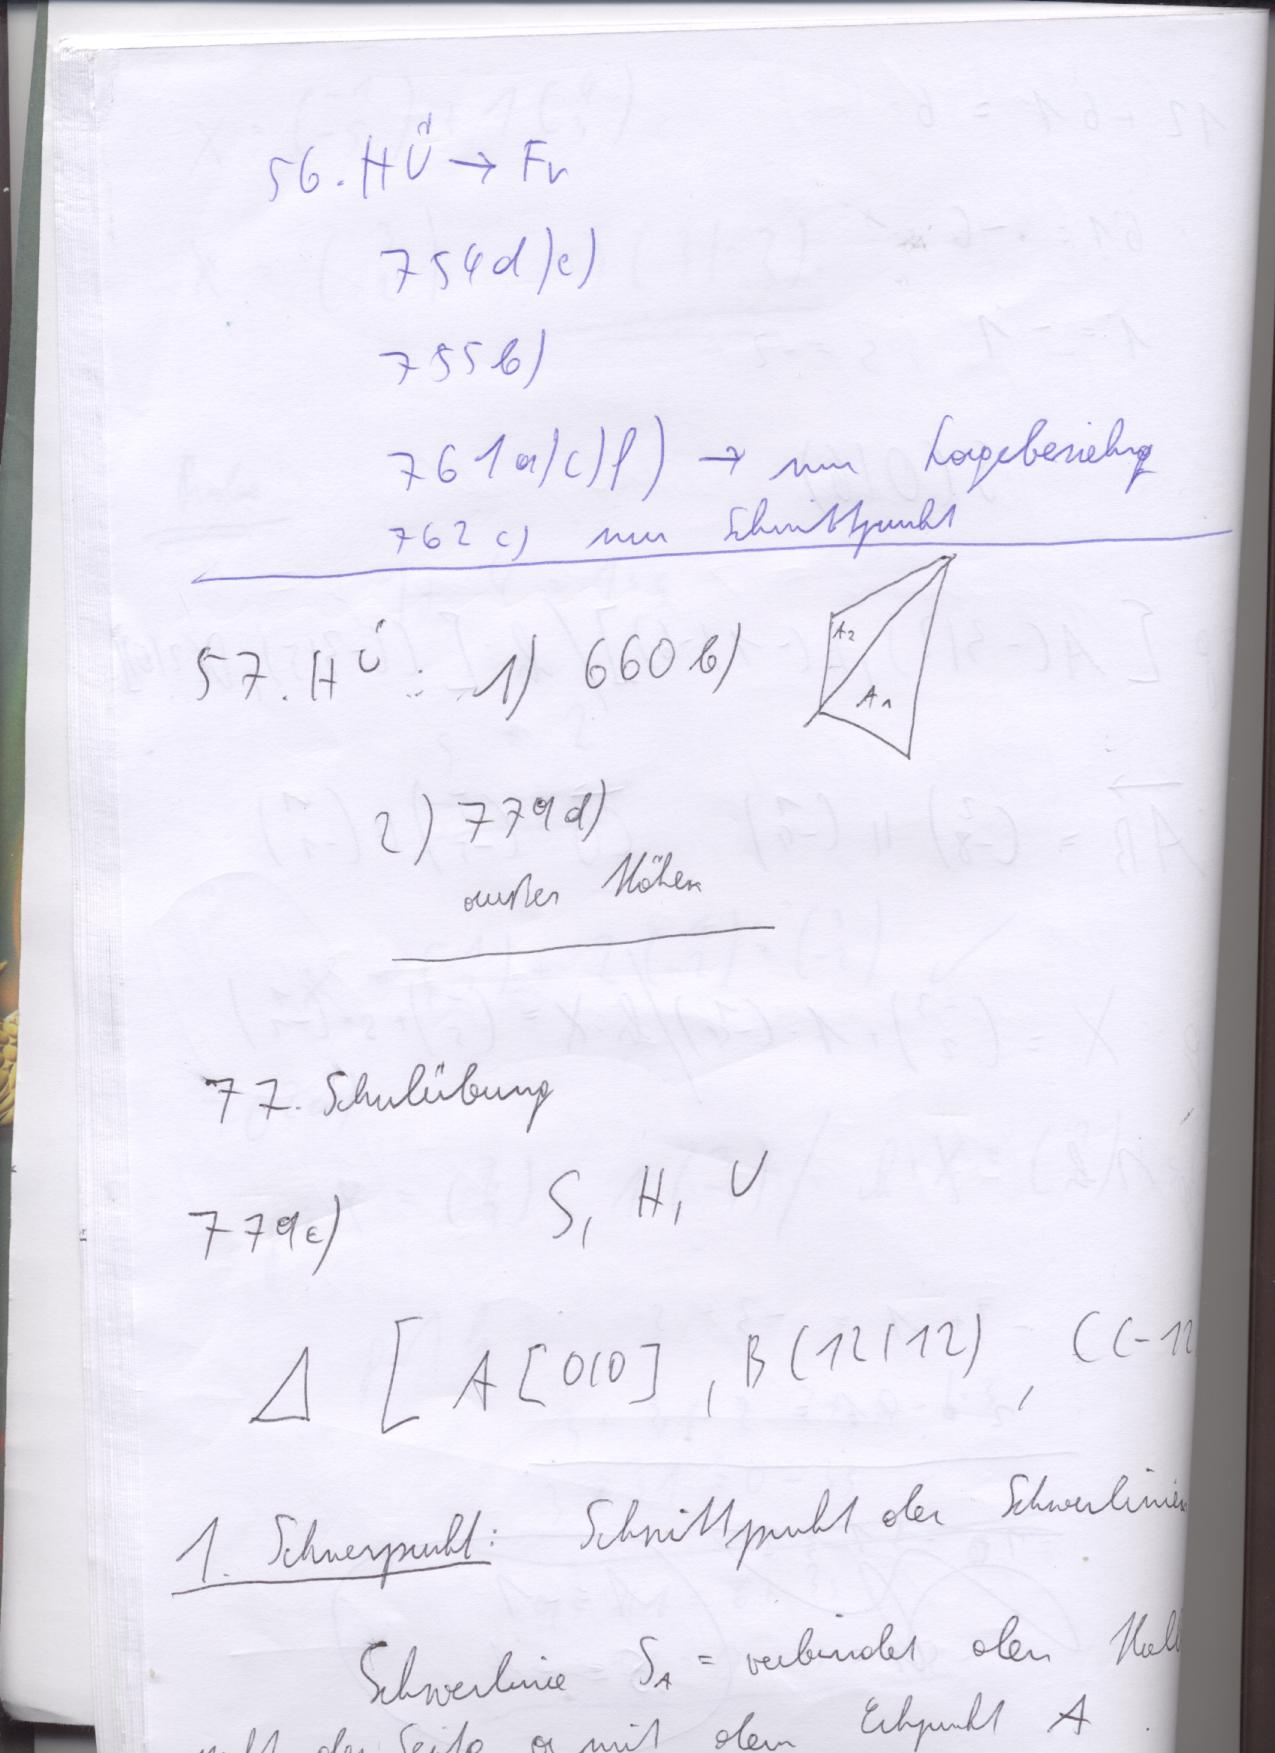 56. HÜ → Fr
754d)e)
755b)
761a)c)f) → nur Lagebeziehg
762c) nur Schnittpunkt
57. HÜ: 1) 660b)
A2
A1
2) 779d)
außer Höhen
77. Schulübung
779e) S, H, U
Δ [A[0|0], B(12|12), C(-12
1. Schwerpunkt: Schnittpunkt der Schwerlinien
Schwerlinie SA = verbindet den Halb
der Seite a mit dem Eckpunkt A